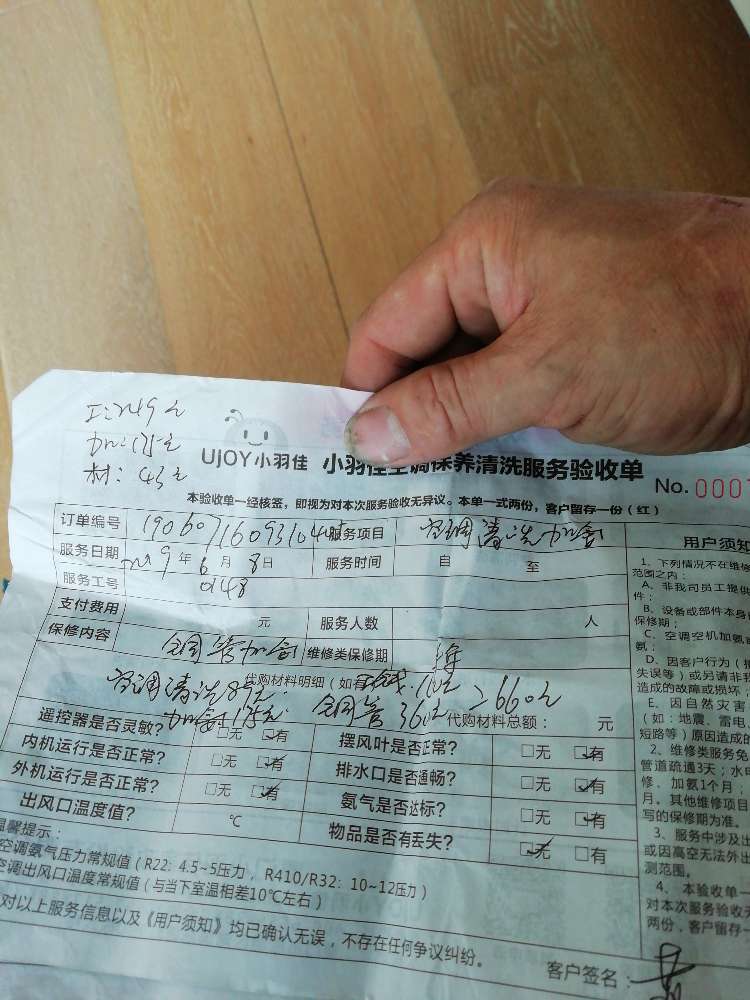 材：43元
UJOY小羽佳 小羽佳空调保养清洗服务验收单
No. 000
本验收单一经核签，即视为对本次服务验收无异议。本单一式两份，客户留存一份（红）
订单编号 服务项目 空调清洗加氟
服务日期 9年6月8日 服务时间 自 至
服务工号 0148
支付费用 元 服务人数 人
保修内容 铜管加氟 维修类保修期
代购材料明细（如有
空调清洗 铜管360元 =660元 代购材料总额： 元
遥控器是否灵敏? □无 □有 摆风叶是否正常? □无 □有
内机运行是否正常? □无 □有 排水口是否通畅? □无 □有
外机运行是否正常? □无 □有 氨气是否达标? □无 □有
出风口温度值? ℃ 物品是否有丢失? □无 □有
温馨提示：
空调氨气压力常规值（R22：4.5~5压力，R410/R32：10~12压力）
空调出风口温度常规值（与当下室温相差10℃左右）
对以上服务信息以及《用户须知》均已确认无误，不存在任何争议纠纷。
客户签名：
用户须知
1、下列情况不在维修
范围之内：
A、非我司员工提供
件；
B、设备或部件本身
保修期；
C、空调空机加氨
氨；
D、因客户行为（
失误等）或另请非我
造成的故障或损坏
E、因自然灾害
（如：地震、雷电、
短路等）原因造成的
2、维修类服务免
管道疏通3天；水
修、加氨1个月；
月。其他维修项目
写的保修期为准。
3、服务中涉及出
或因高空无法外出
测范围。
4、本验收单一
对本次服务验收无
两份，客户留存一